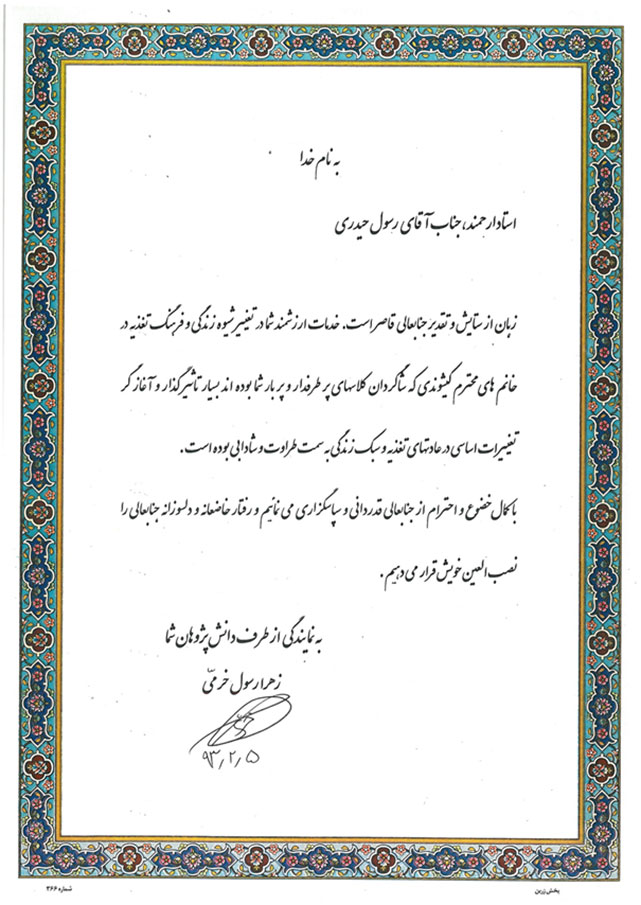 به نام خدا
استاد ارجمند، جناب آقای رسول حیدری
زبان از ستایش و تقدیر جنابعالی قاصر است. خدمات ارزشمند شما در تغییر شیوه زندگی و فرهنگ تغذیه در
خانم های محترم کیشوندی که شاگردان کلاسهای پر طرفدار و پر بار شما بوده اند بسیار تاثیرگذار و آغاز گر
تغییرات اساسی در عادتهای تغذیه و سبک زندگی به سمت طراوت و شادابی بوده است.
با کمال خضوع و احترام از جنابعالی قدردانی و سپاسگزاری می نمائیم و رفتار خاضعانه و دلسوزانه جنابعالی را
نصب العین خویش قرار می دهیم.
به نمایندگی از طرف دانش پژوهان شما
زهرا رسول خرمّی
۹۳٫۲٫۵
پخش زرین
شماره ۳۶۶